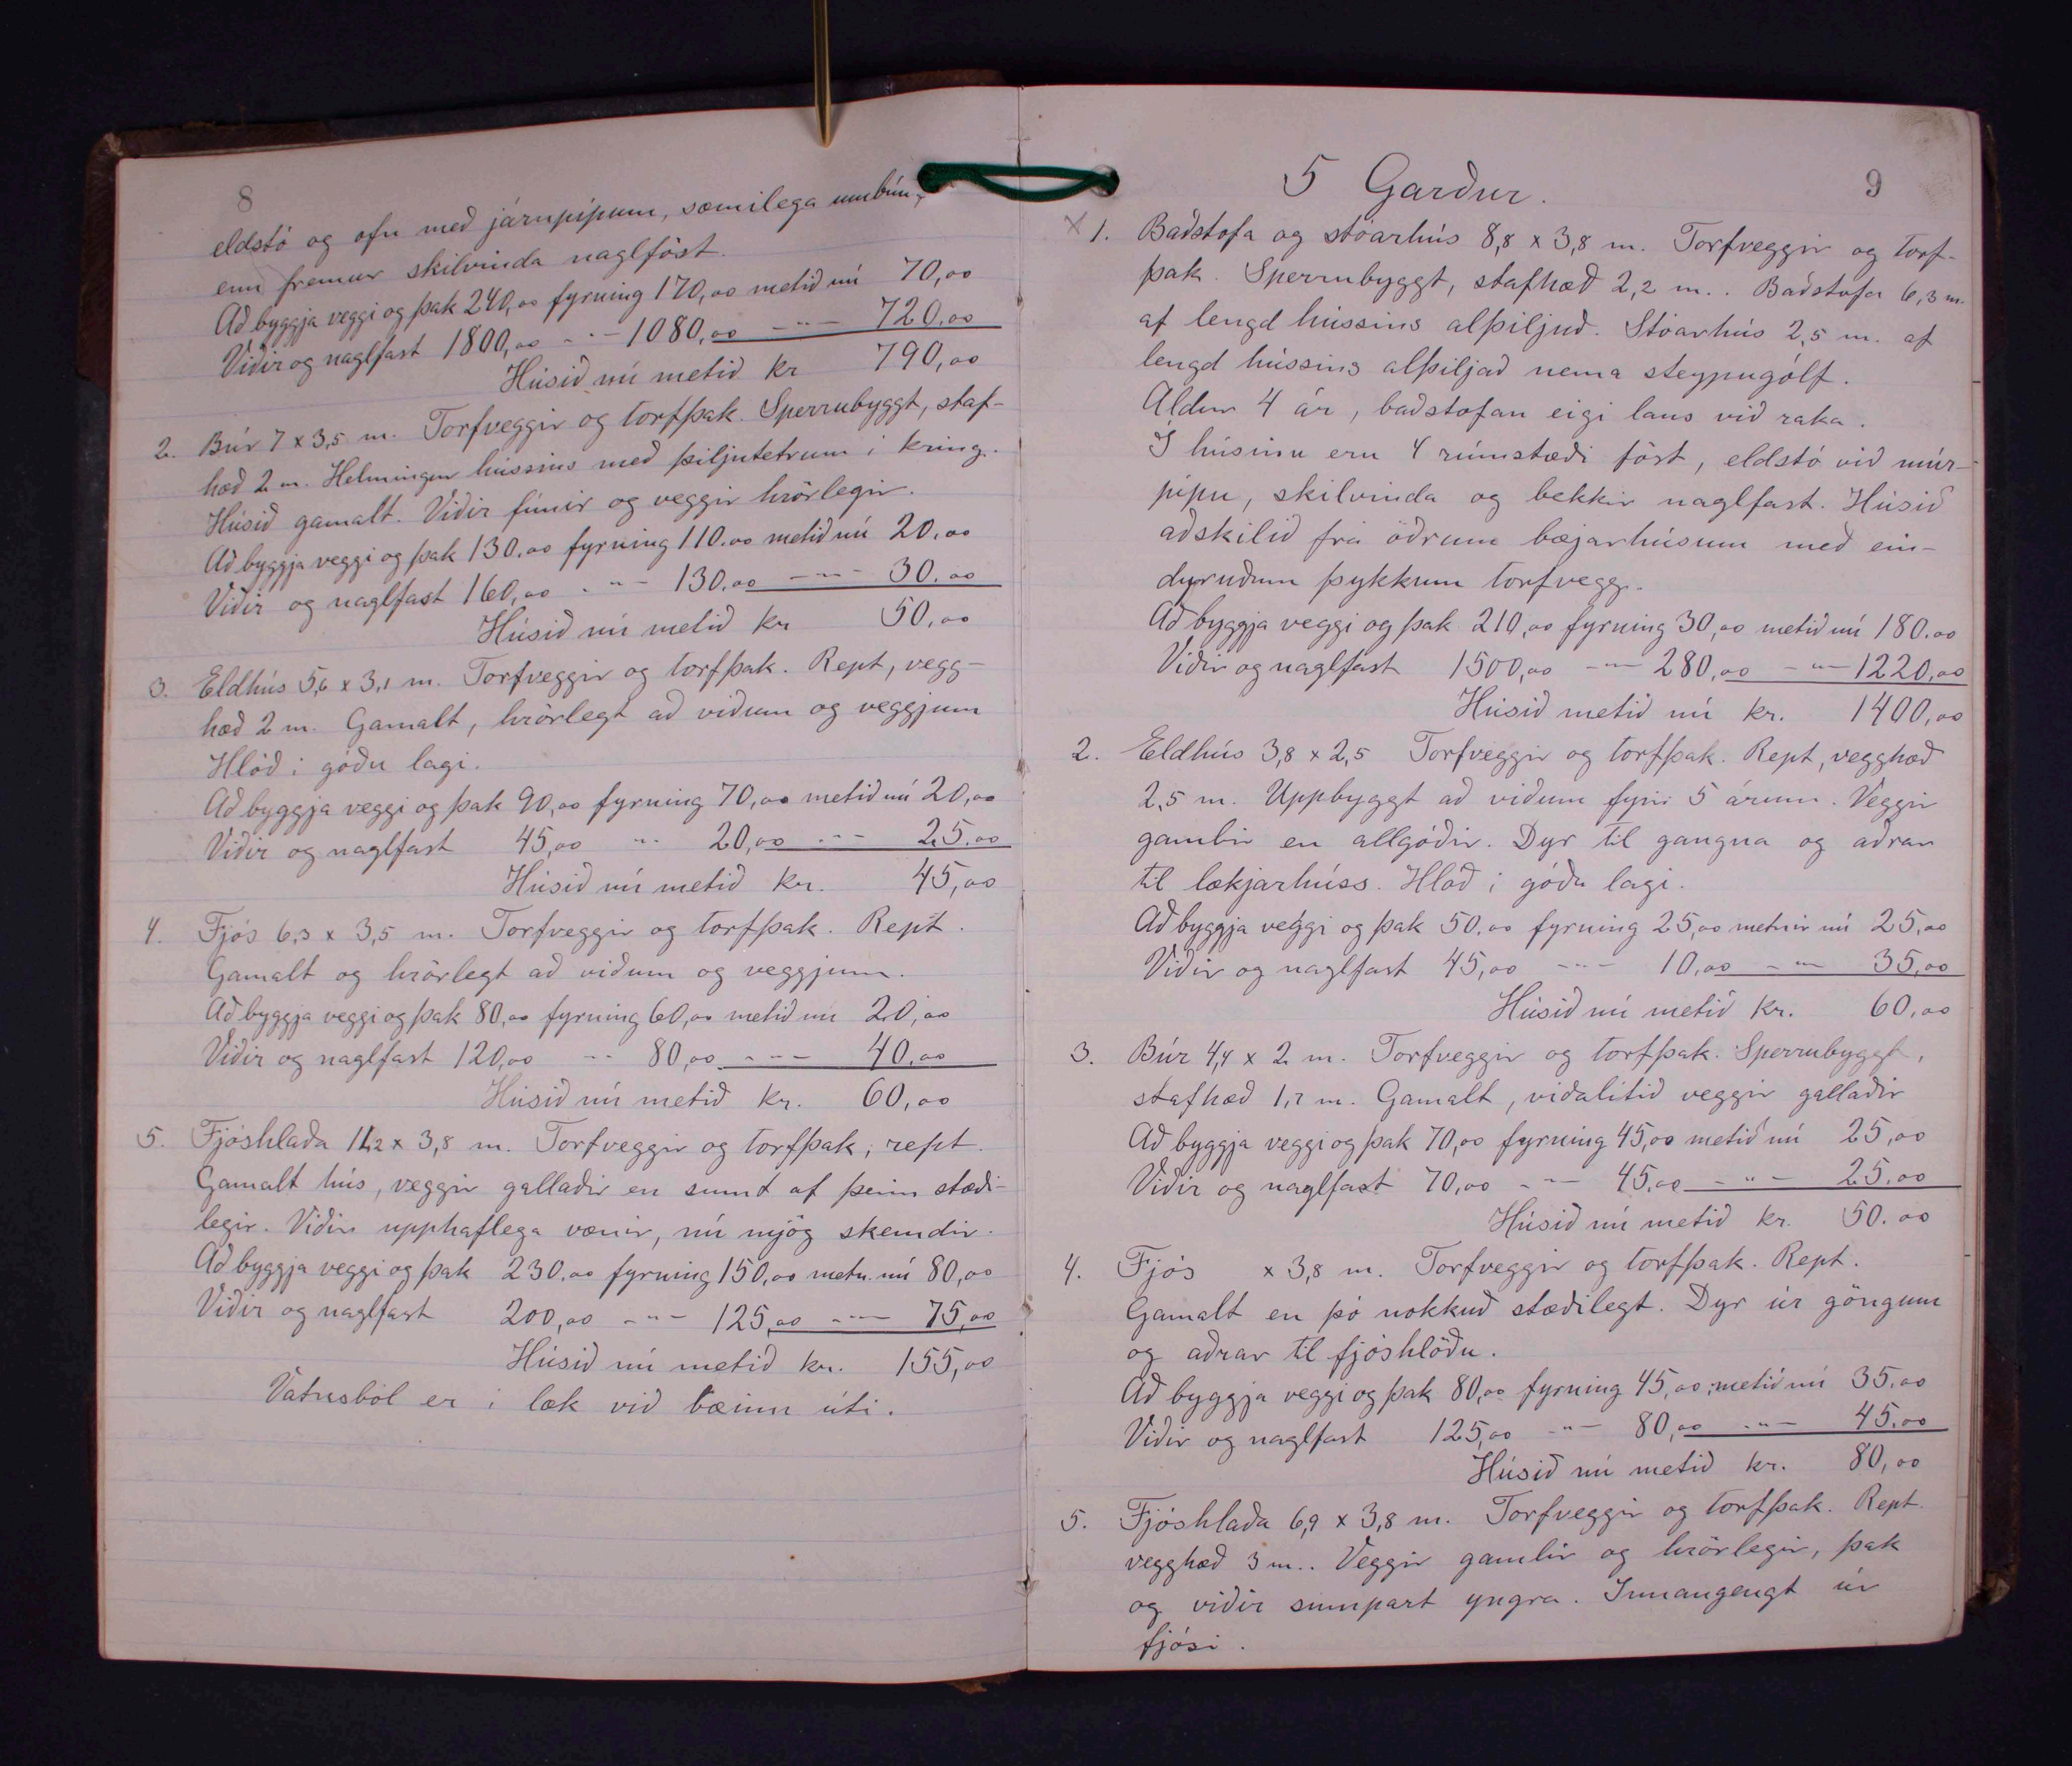 8
eldstó og ofn með járnpípum, sæmilega umbún,
enn fremur skilvinda naglföst.
Að byggja veggi og þak 240,00 fyrning 170,00 metið nú 70,00
Viðir og naglfast 1800,00 -"- 1080,00 -"- 720,00
Húsið nú metið kr 790,00
2. Búr 7 x 3,5 m. Torfveggir og torfþak. Sperrubyggt, staf-
hæð 2 m. Helmingur hússins með þiljutetrum í kring.
Húsið gamalt. Viðir fúnir og veggir hrörlegir.
Að byggja veggi og þak 130.00 fyrning 110.00 metið nú 20,00
Viðir og naglfast 160,00 -"- 130.00 -"- 30.00
Húsið nú metið kr 50,00
3. Eldhús 5,6 x 3,1 m. Torfveggir og torfþak. Rept, vegg-
hæð 2 m. Gamalt, hrörlegt að viðum og veggjum
Hlóð í góðu lagi.
Að byggja veggi og þak 90,00 fyrning 70,00 metið nú 20,00
Viðir og naglfast 45,00 -"- 20,00 -"- 25.00
Húsið nú metið kr. 45,00
4. Fjós 6,3 x 3,5 m. Torfveggir og torfþak. Rept.
Gamalt og hrörlegt að viðum og veggjum.
Að byggja veggi og þak 80,00 fyrning 60,00 metið nú 20,00
Viðir og naglfast 120,00 -"- 80,00 -"- 40,00
Húsið nú metið kr. 60,00
5. Fjóshlaða 11,2 x 3,8 m. Torfveggir og torfþak, rept.
Gamalt hús, veggir gallaðir en sumt af þeim stæði-
legir. Viðir upphaflega vænir, nú mjög skemdir.
Að byggja veggi og þak 230.00 fyrning 150,00 metn. nú 80,00
Viðir og naglfast 200,00 -"- 125,00 -"- 75,00
Húsið nú metið kr. 155,00
Vatnsból er í læk við bæinn úti.
9
5 Garður.
x 1. Baðstofa og stóarhús 8,8 x 3,8 m. Torfveggir og torf-
þak. Sperrubyggt, stafhæð 2,2 m.. Baðstofa 6,3 m.
af lengd hússins alþiljuð. Stóarhús 2,5 m. af
lengd hússins alþiljað nema steypugólf.
Aldur 4 ár, baðstofan eigi laus við raka.
Í húsinu eru 4 rúmstæði föst, eldstó við múr-
pípu, skilvinda og bekkir naglfast. Húsið
aðskilið frá öðrum bæjarhúsum með ein-
dyruðum þykkum torfvegg.
Að byggja veggi og þak 210,00 fyrning 30,00 metið nú 180.00
Viðir og naglfast 1500,00 -"- 280,00 -"- 1220,00
Húsið metið nú kr. 1400,00
2. Eldhús 3,8 x 2,5 Torfveggir og torfþak. Rept, vegghæð
2,5 m. Uppbyggt að viðum fyrir 5 árum. Veggir
gamlir en allgóðir. Dyr til gangna og aðrar
til lækjarhúss. Hlóð í góðu lagi.
Að byggja veggi og þak 50.00 fyrning 25,00 metnir nú 25,00
Viðir og naglfast 45,00 -"- 10,00 -"- 35,00
Húsið nú metið kr. 60,00
3. Búr 4,4 x 2 m. Torfveggir og torfþak. Sperrubyggt,
stafhæð 1,7 m. Gamalt, viðalítið veggir gallaðir
Að byggja veggi og þak 70,00 fyrning 45,00 metið nú 25,00
Viðir og naglfast 70,00 -"- 45.00 -"- 25.00
Húsið nú metið kr. 50.00
4. Fjós x 3,8 m. Torfveggir og torfþak. Rept.
Gamalt en þó nokkuð stæðilegt. Dyr úr göngum
og aðrar til fjóshlöðu.
Að byggja veggi og þak 80,00 fyrning 45,00, metið nú 35.00
Viðir og naglfast 125,00 -"- 80,00 -"- 45.00
Húsið nú metið kr. 80,00
5. Fjóshlaða 6,9 x 3,8 m. Torfveggir og torfþak. Rept.
vegghæð 3 m.. Veggir gamlir og hrörlegir, þak
og viðir sumpart yngra. Innangengt úr
fjósi.